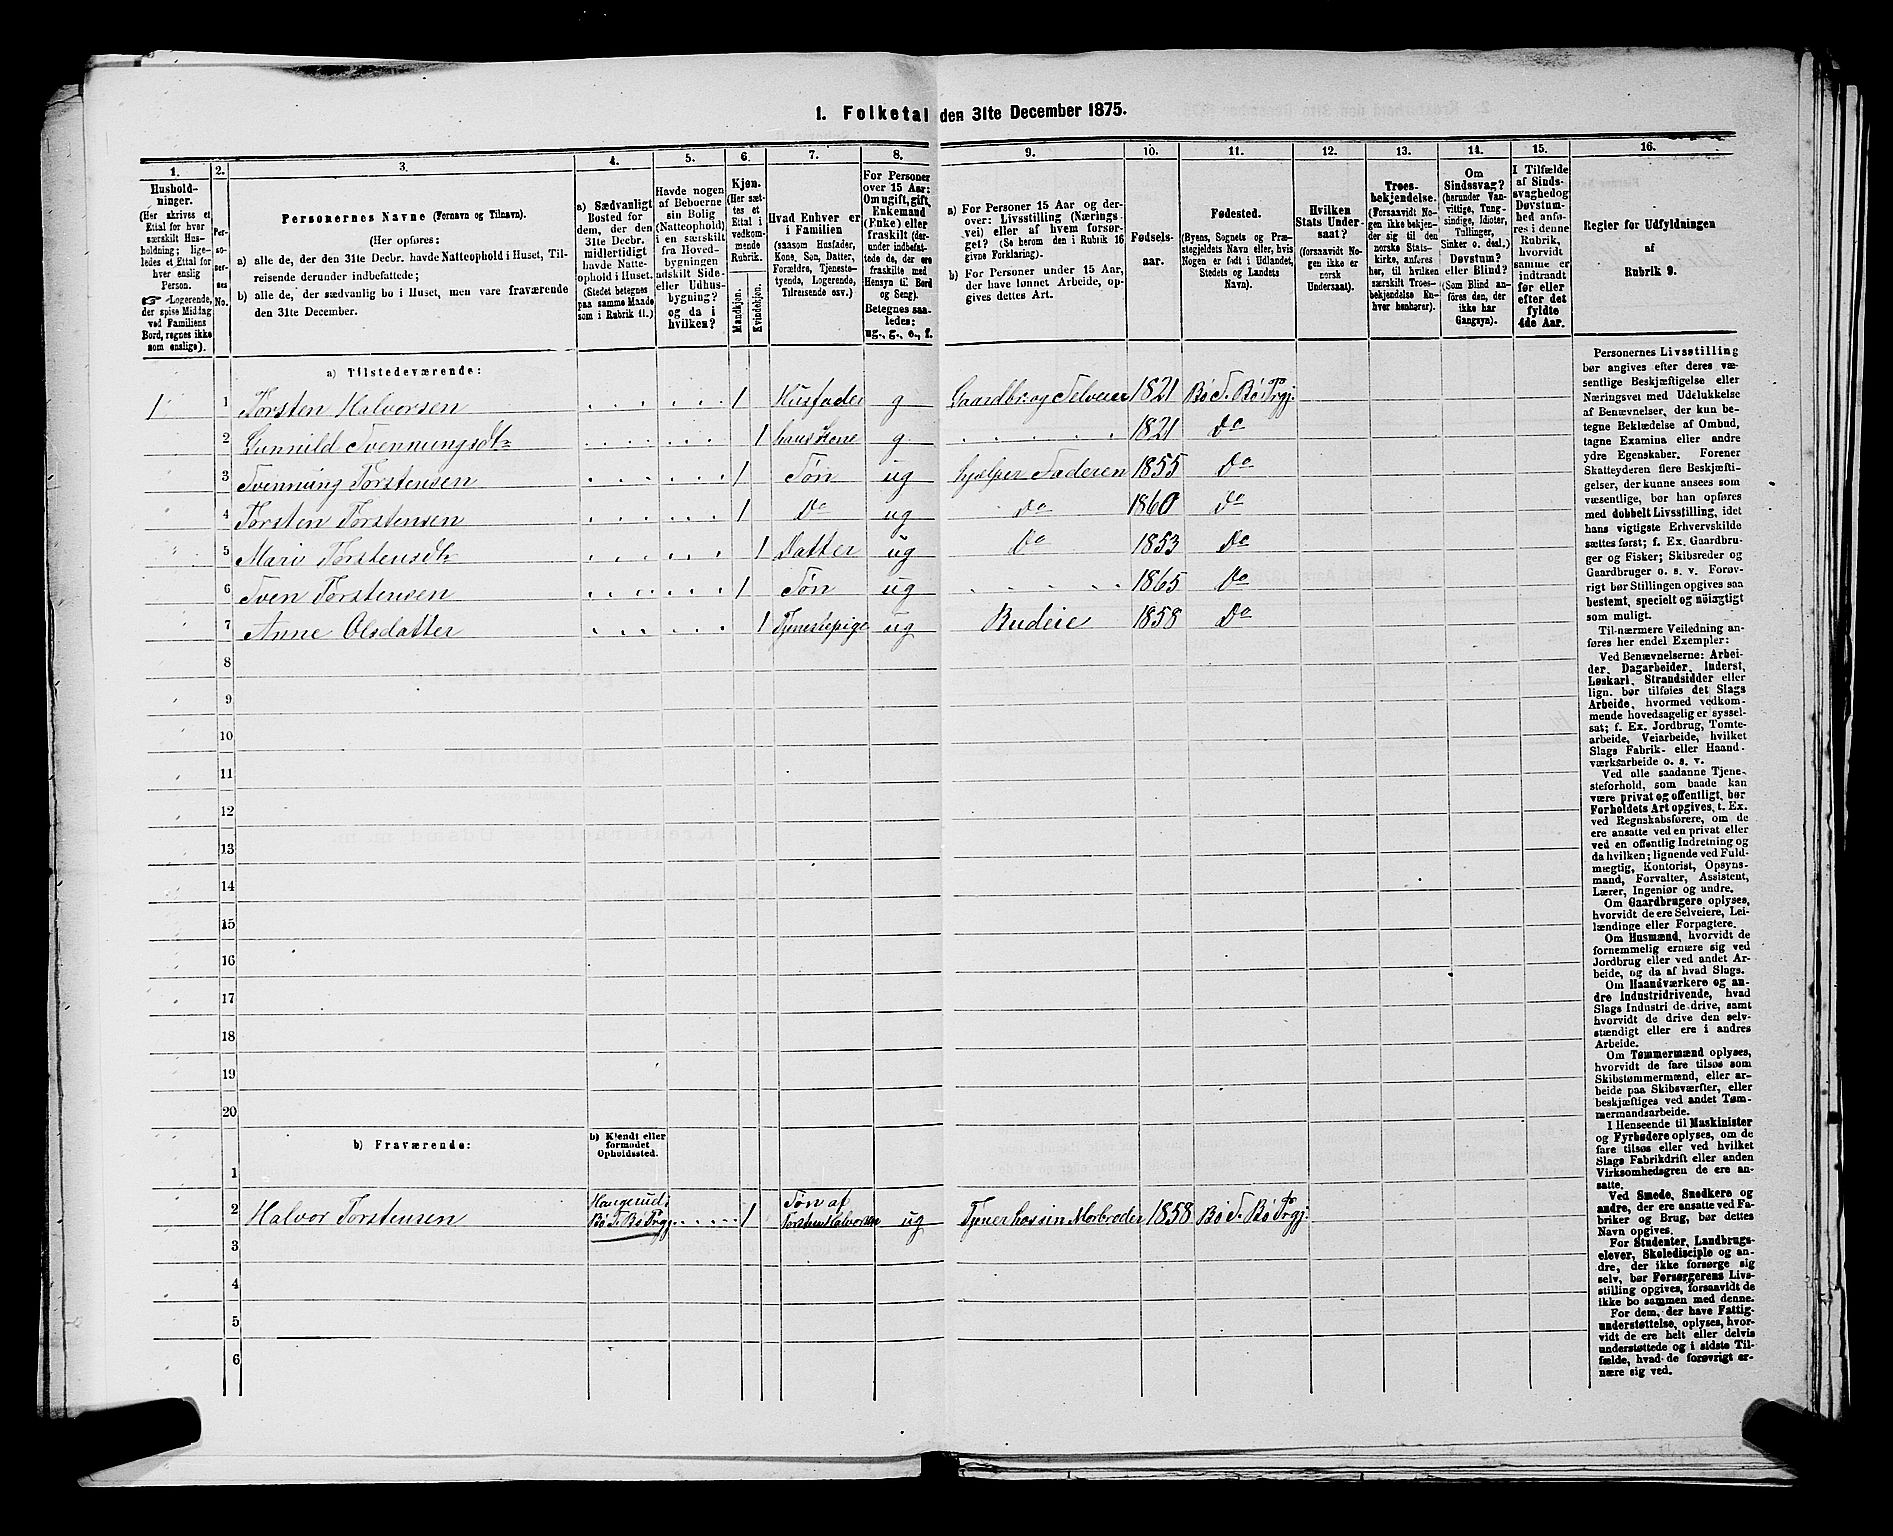 1. Folketal den 31te December 1875.
1. 2. 3. 4. 5. 6. 7. 8. 9. 10. 11. 12. 13. 14. 15. 16.
Hushold-
ninger.
(Her skrives et
Ettal for hver
særskilt Hus-
holdning; lige-
ledes et Ettal for
hver enslig
Person.
☞ Logerende,
der spise Middag
ved Familiens
Bord, regnes ikke
som enslige).
Per-
so-
ner-
nes
No.
Personernes Navne (Fornavn og Tilnavn).
(Her opføres:
a) alle de, der den 31te Decbr. havde Natteophold i Huset, Til-
reisende derunder indbefattede;
b) alle de, der sædvanlig bo i Huset, men vare fraværende
den 31te December.
a) Sædvanligt
Bosted for
dem, der den
31te Decbr.
midlertidigt
havde Natte-
ophold i Huset.
(Stedet betegnes
paa samme Maade
som i Rubrik 11.)
Havde nogen
af Beboerne
sin Bolig
(Natteophold)
i en særskilt
fra Hoved-
bygningen
adskilt Side-
eller Udhus-
bygning?
og da i
hvilken?
Kjøn.
(Her sæt-
tes et
Ettal i
vedkom-
mende
Rubrik.
Mandkjøn.
Kvindekjøn.
Hvad Enhver er
i Familien
(saasom Husfader,
Kone, Søn, Datter,
Forældre, Tjeneste-
tyende, Logerende,
Tilreisende osv.)
For Personer
over 15 Aar:
Om ugift, gift,
Enkemand
(Enke) eller
fraskilt (der-
under indbefat-
tede de, der ere
fraskilte med
Hensyn til Bord
og Seng).
Betegnes saa-
ledes:
ug., g., e., f.
a) For Personer 15 Aar og der-
over: Livsstilling (Nærings-
vei) eller af hvem forsør-
get? (Se herom den i Rubrik 16
givne Forklaring).
b) For Personer under 15 Aar,
der have lønnet Arbeide, op-
gives dettes Art.
Fødsels-
aar.
Fødested.
(Byens, Sognets og Præ-
stegjeldets Navn eller, hvis
Nogen er født i Udlandet,
Stedets og Landets
Navn).
Hvilken
Stats Under-
saat?
(forsaavidt No-
gen ikke er
norsk
Undersaat).
Troes-
bekjendelse.
(Forsaavidt No-
gen ikke bekjen-
der sig til den
norske Stats-
kirke, anføres
her, til hvilken
særskilt Troes-
bekjendelse En-
hver henhører).
Om
Sindssvag?
(herunder Van-
vittige, Tung-
sindige, Idioter,
Tullinger,
Sinker o. desl.)
Døvstum?
eller Blind?
(Som Blind an-
føres den, der
ikke har
Gangsyn).
I Tilfælde
af Sinds-
svaghed og
Døvstum-
hed anfø-
res i denne
Rubrik,
hvorvidt
samme er
indtraadt
før eller
efter det
fyldte
4de Aar.
Regler for Udfyldningen
af
Rubrik 9.
a) Tilstedeværende:
1 1 Torsten Halvorsen 1 Husfader g Gaardbr. og Selveier 1821 Bø S. Bø Prgj.
2 Gunnild Svennungsdtr 1 hans Kone g 1821 Do
3 Svennung Torstensen 1 Søn ug hjælper Faderen 1855 Do
4 Torsten Torstensen 1 Do ug Do 1860 Do
5 Mari Torstensdtr 1 Datter ug Do 1853 Do
6 Sven Torstensen 1 Søn ug 1865 Do
7 Anne Olsdatter 1 Tjenestepige ug Budeie 1858 Do
8
9
10
11
12
13
14
15
16
17
18
19
20
b) Fraværende:
b) Kjendt eller
formodet
Opholdssted.
1
2 Halvor Torstensen Haugerud, Bø S. Bø Prgj. 1 Søn af Torsten Halvorsen ug Tjener hos sin Morbroder 1858 Bø S. Bø Prgj.
3
4
5
6
Personernes Livsstilling
bør angives efter deres væ-
sentlige Beskjæftigelse eller
Næringsvei med Udelukkelse
af Benævnelser, der kun be-
tegne Beklædelse af Ombud,
tagne Examina eller andre
ydre Egenskaber. Forener
Skatteyderen flere Beskjæfti-
gelser, der kunne ansees som
væsentlige, bør han opføres
med dobbelt Livsstilling, idet
hans vigtigste Erhvervskilde
sættes først; f. Ex. Gaardbru-
ger og Fisker; Skibsreder og
Gaardbruger o. s. v. Forøv-
rigt bør Stillingen opgives saa
bestemt, specielt og nöiagtigt
som muligt.
Til nærmere Veiledning an-
føres her endel Exempler:
Ved Benævnelserne: Arbei-
der, Dagarbeider, Inderst,
Løskarl, Strandsidder eller
lign. bør tilføies det Slags
Arbeide, hvormed vedkom-
mende hovedsagelig er syssel-
sat; f. Ex. Jordbrug, Tomte-
arbeide, Veiarbeide, hvilket
Slags Fabrik- eller Haand-
værksarbeide o. s. v.
Ved alle saadanne Tjene-
steforhold, som baade kan
være privat og offentligt, bør
Forholdets Art opgives, t. Ex.
ved Regnskabsførere, om de
ere ansatte ved en privat eller
ved en offentlig Indretning og
da hvilken; lignende ved Fuld-
mægtig, Kontorist, Opsyns-
mand, Forvalter, Assistent,
Lærer, Ingeniør og andre.
Om Gaardbrugere oplyses,
hvorvidt de ere Selveiere, Lei-
lændinge eller Forpagtere.
Om Husmænd, hvorvidt de
fornemmelig ernære sig ved
Jordbrug eller ved andet Ar-
beide, og da af hvad Slags.
Om Haandværkere og an-
dre Industridrivende, hvad
Slags Industri de drive, samt
hvorvidt de drive den selv-
stændigt eller ere i andres
Arbeide.
Om Tømmermænd oplyses,
hvorvidt de fare tilsøs som
Skibstømmermænd, eller ar-
beide paa Skibsværfter, eller
beskjæftiges ved andet Tøm-
mermandsarbeide.
I Henseende til Maskinister
og Fyrbødere oplyses, om de
fare tilsøs eller ved hvilket
Slags Fabrikdrift eller anden
Virksomhedsgren de ere an-
satte.
Ved Smede, Snedkere og
andre, der ere ansatte ved Fa-
briker og Brug, bør dettes
Navn opgives.
For Studenter, Landbrugs-
elever, Skoledisciple og an-
dre, der ikke forsørge sig
selv, bør Forsørgerens Livs-
stilling opgives, forsaavidt de
ikke bo sammen med denne.
For dem, der have Fattig-
understøttelse, oplyses, hvor-
vidt de ere helt eller delvis
understøttede og i sidste Til-
fælde, hvad de forøvrigt er-
nære sig ved.